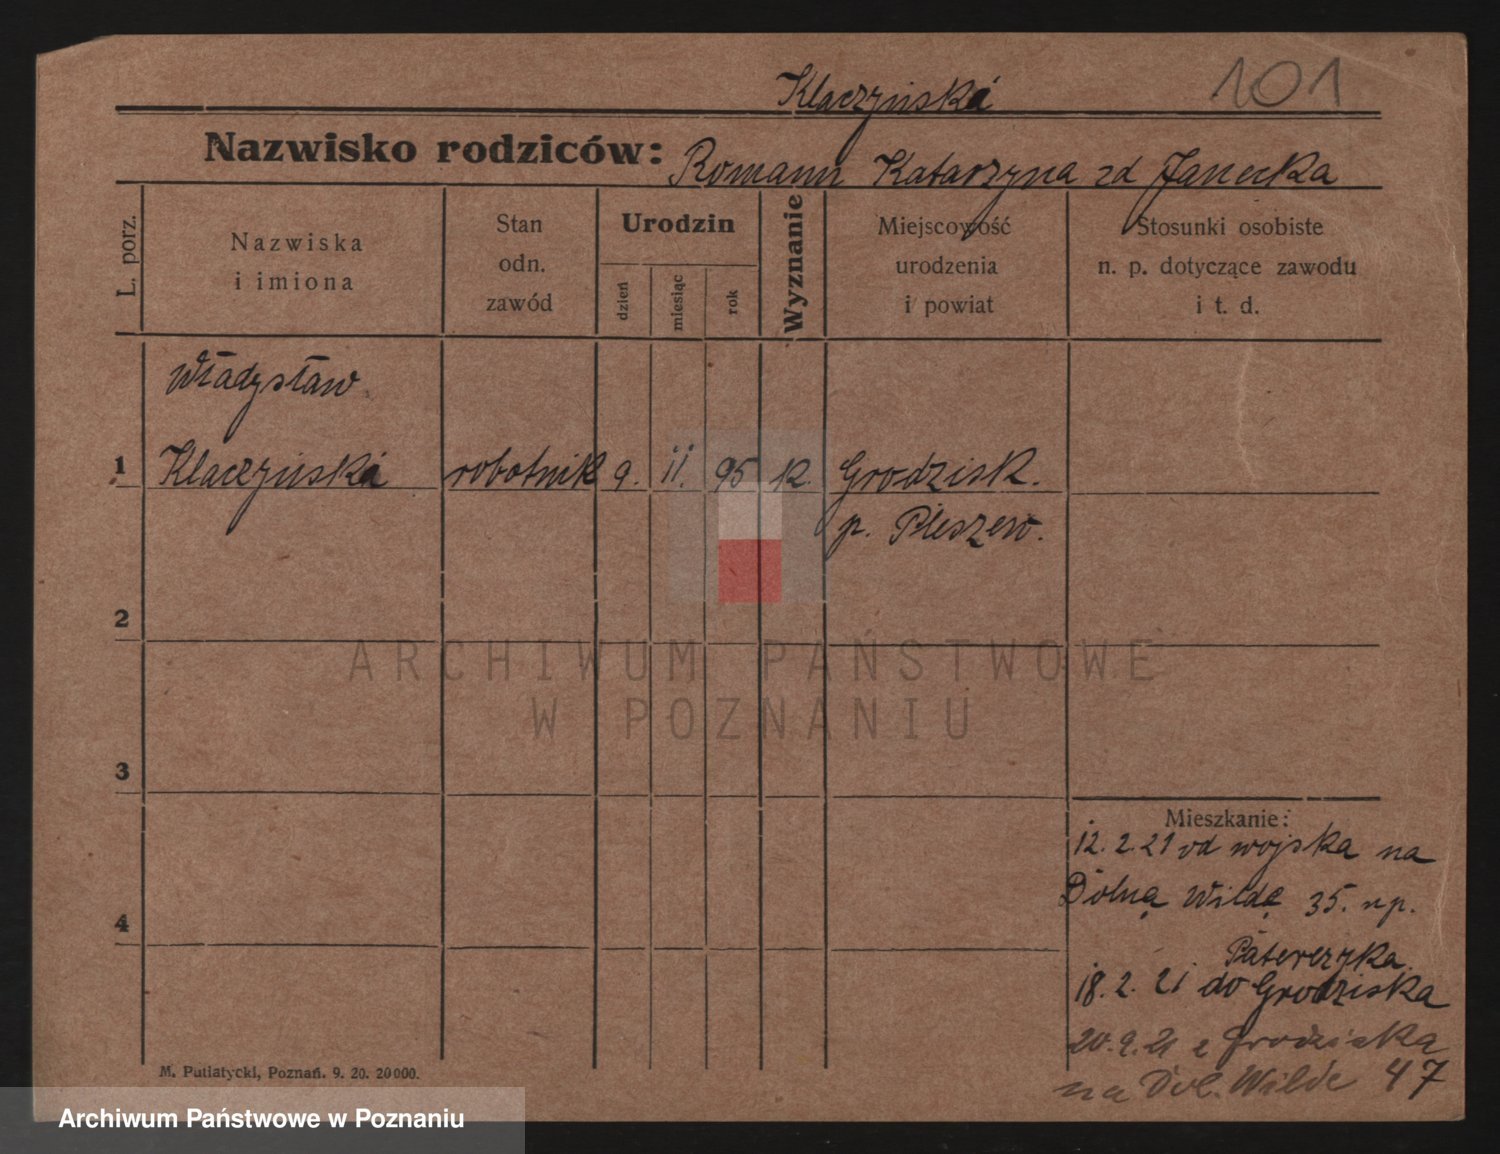 Klaczyński 101
Nazwisko rodziców: Romann Katarzyna zd Janecka
L. porz.
Nazwiska
i imiona
Stan
odn.
zawód
Urodzin
dzień
miesiąc
rok
Wyznanie
Miejscowość
urodzenia
i powiat
Stosunki osobiste
n. p. dotyczące zawodu
i t. d.
Władysław
1 Klaczyński robotnik 9. 11. 95 k. Grodzisk.
p. Pleszew.
2
ARCHIWUM PAŃSTWOWE
W POZNANIU
3
Mieszkanie:
12. 2. 21 od wojska na
Dolną Wildę 35. np.
4
Paterczyka
18. 2. 21 do Grodziska
20. 9. 21 z Grodziska
na Dol. Wilde 47
M. Putiatycki, Poznań. 9. 20. 20000.
Archiwum Państwowe w Poznaniu